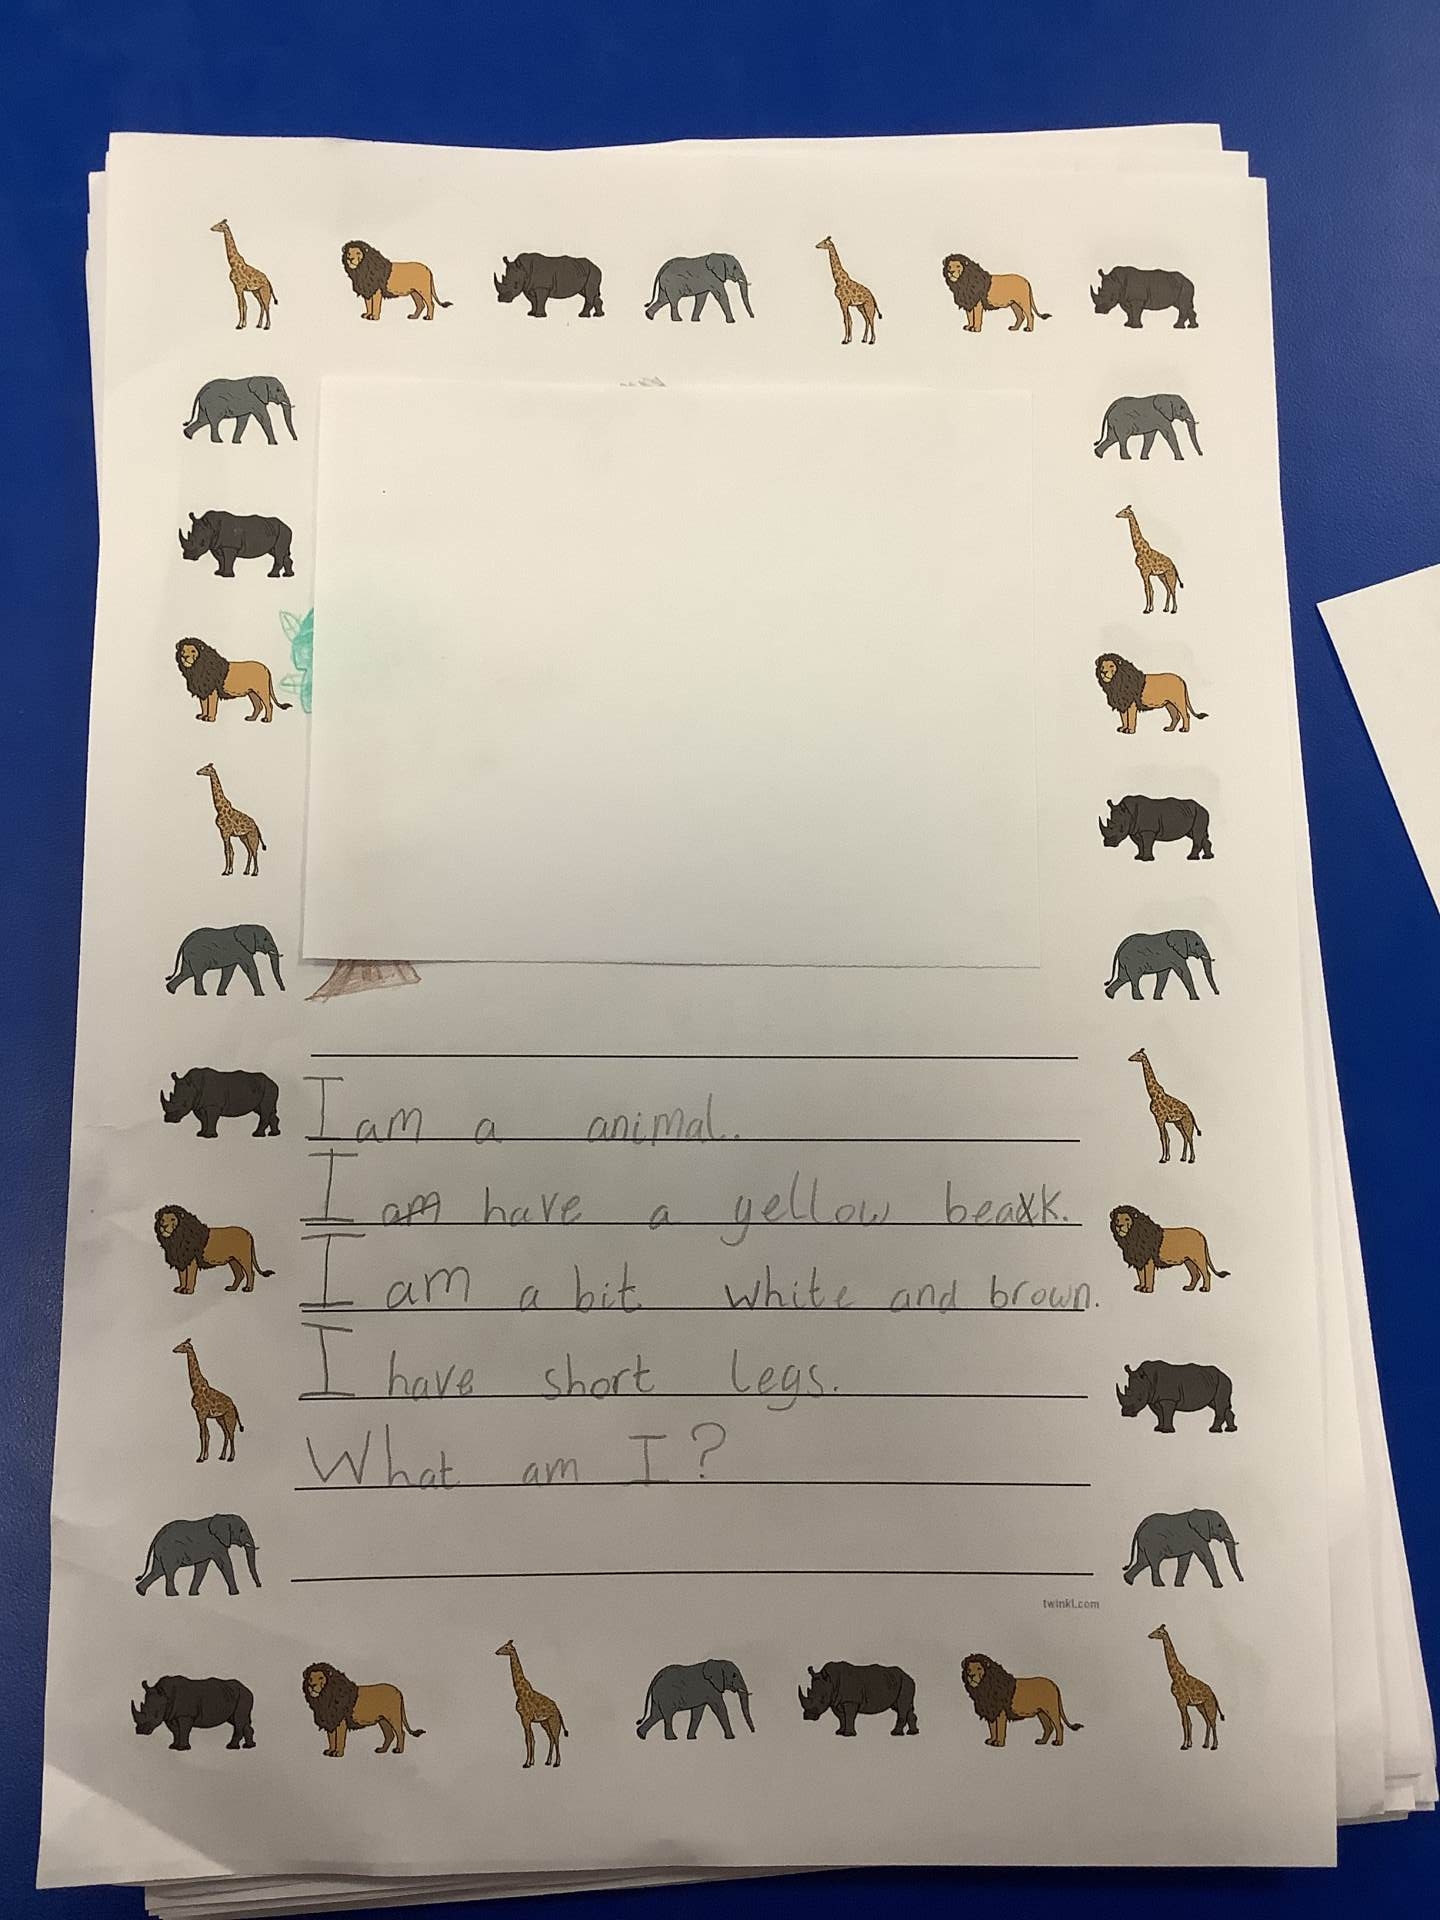 I am a animal.
I am have a yellow beak.
I am a bit white and brown.
I have short legs.
What am I?
twinkl.com